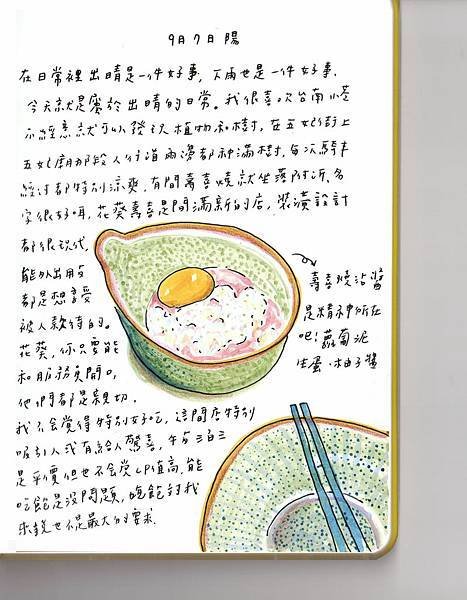 9月7日 陽
在日常裡出晴是一件好事, 下雨也是一件好事.
今天就是屬於出晴的日常。我很喜歡台南, 不
不經意就可以發現植物和樹, 在五妃街上
五妃廟那段人行道兩邊都種滿樹, 每次騎車
經過都特別涼爽, 有間壽喜燒就坐落附近, 名
字很好唔, 花葵壽喜是間滿新的店, 裝潢設計
都很現代
能外出用字
都是想要
被人款待的。
花葵, 你只要能
和服務員開口,
他們都是親切.
我不會覺得特別好吃, 這間店特別
吸引人沒有給人驚喜, 牛
是平價但也不會覺CP值高, 能
吃飽是沒問題, 吃飽對我
來說也是最大的要求.
壽喜燒沾醬
是精神所在
吧! 蘿蔔泥
生蛋·柚子醬